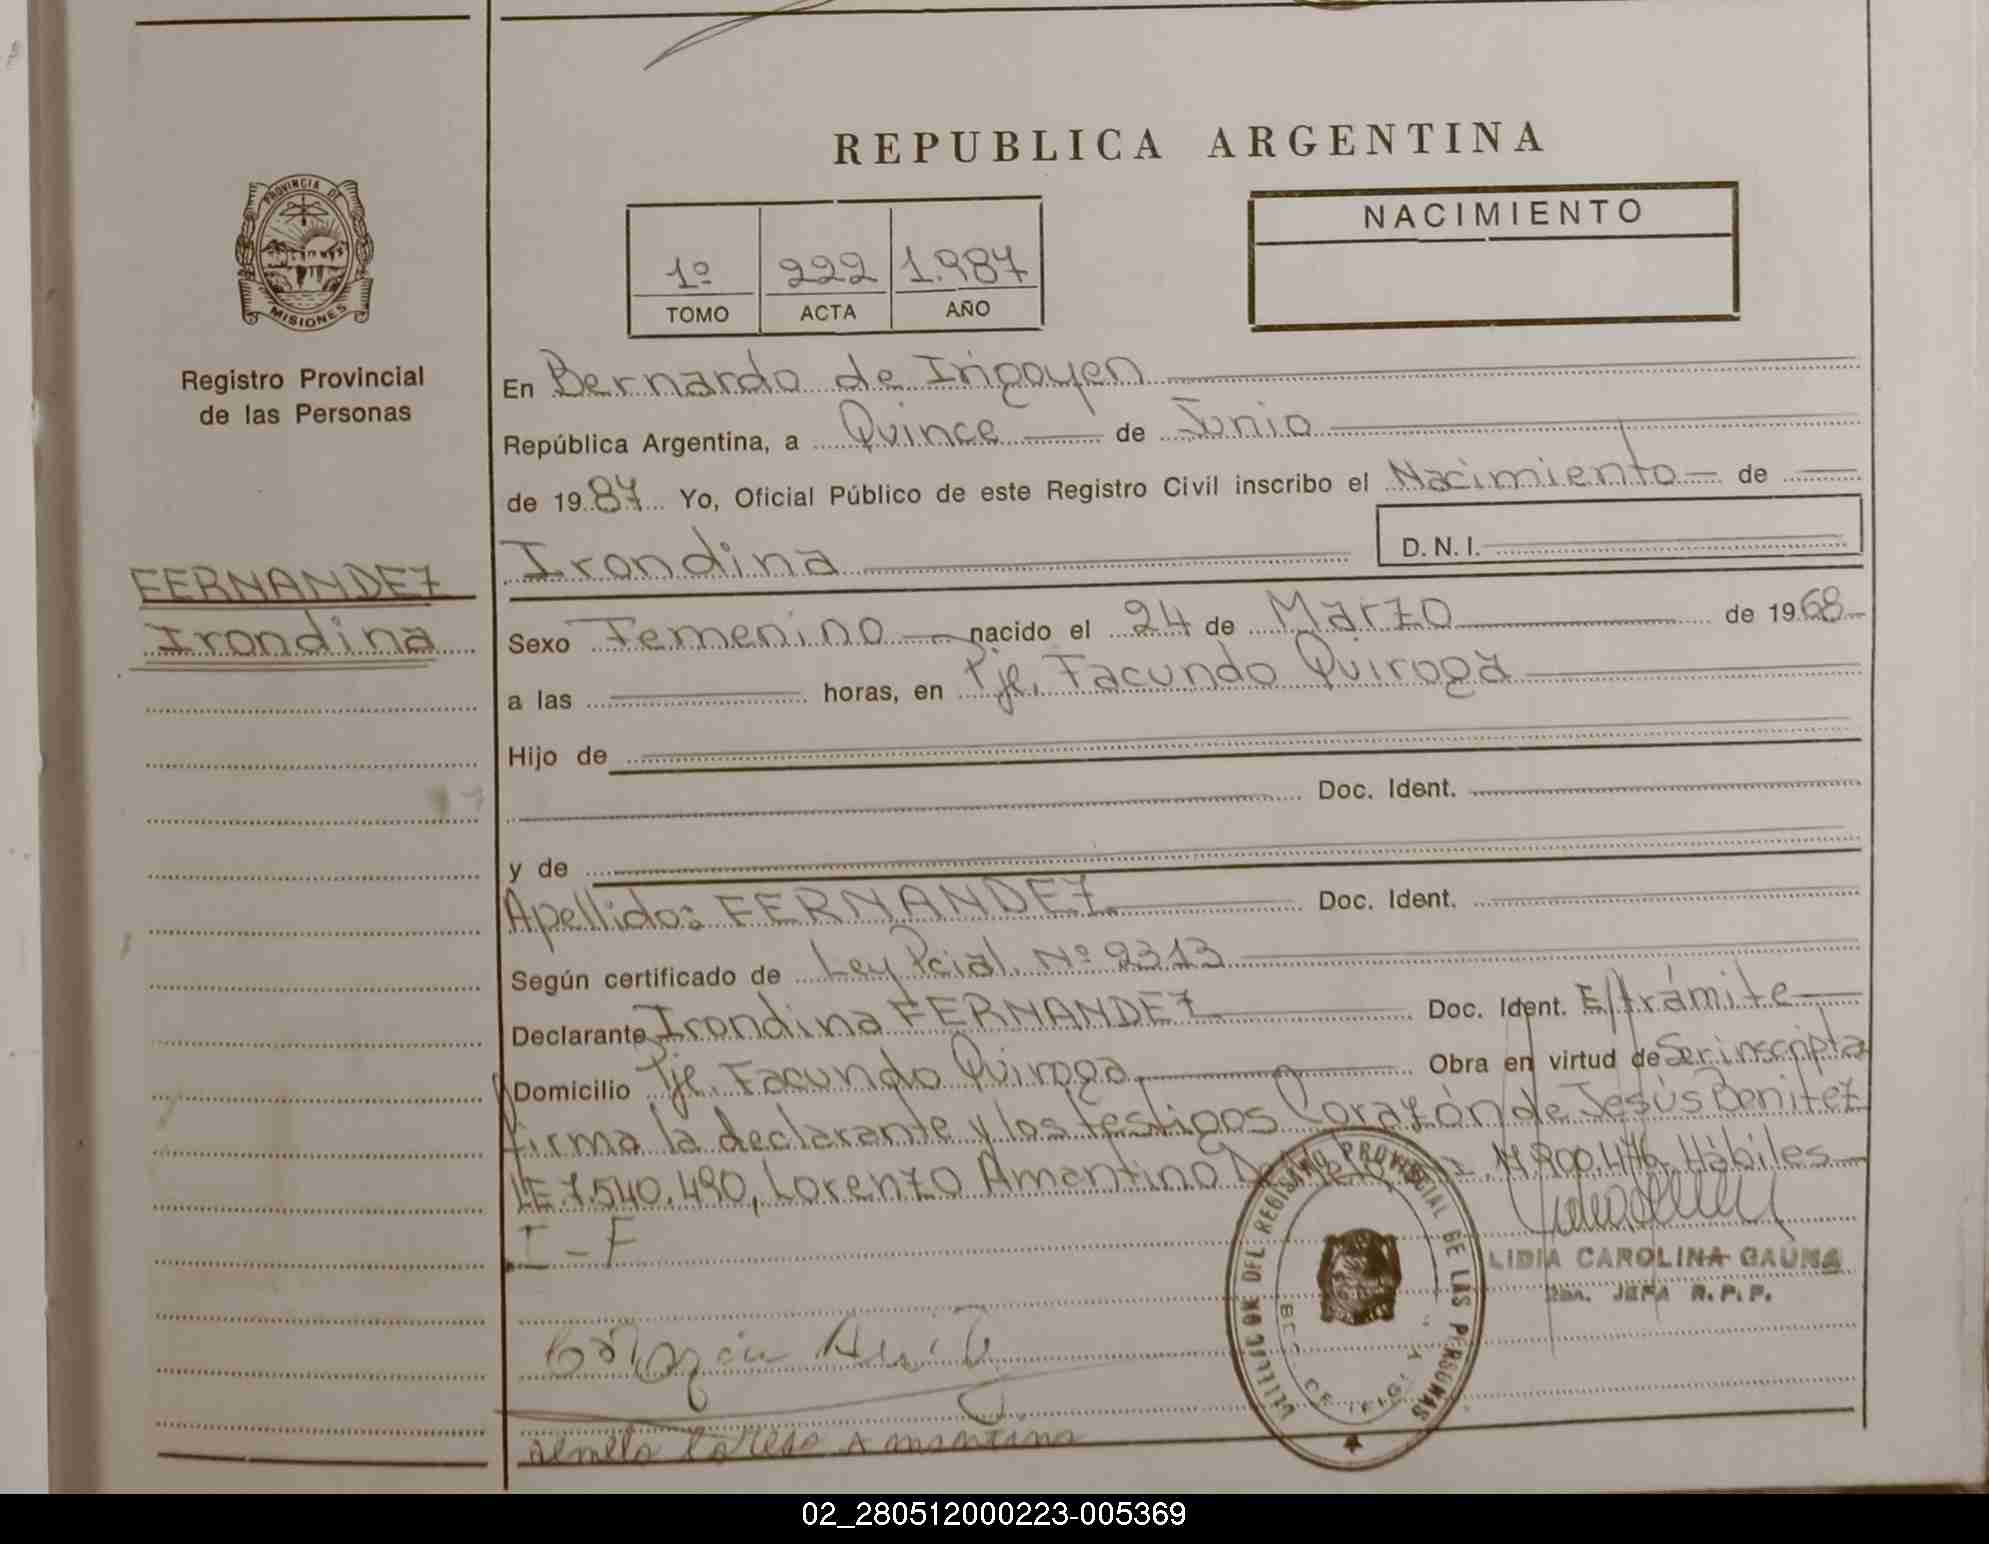 REPUBLICA ARGENTINA
PROVINCIA DE
MISIONES
Registro Provincial
de las Personas
FERNANDEZ
Irondina
1º 222 1.987
TOMO ACTA AÑO
NACIMIENTO
En Bernardo de Irigoyen
República Argentina, a Quince de Junio
de 1987 Yo, Oficial Público de este Registro Civil inscribo el Nacimiento de
Irondina D. N. I.
Sexo Femenino nacido el 24 de Marzo de 1968
a las horas, en Pje. Facundo Quiroga
Hijo de
Doc. Ident.
y de
Apellidos FERNANDEZ Doc. Ident.
Según certificado de Ley Pcial. Nº 2313
Declarante Irondina FERNANDEZ Doc. Ident. E/trámite
Domicilio Pje. Facundo Quiroga Obra en virtud de Ser inscripta
firma la declarante y los testigos Corazón de Jesús Benitez
LE 7.540.490, Lorenzo Amantino Hábiles
I - F
LIDIA CAROLINA GAUNA
JEFA R. P. P.
DEL REGISTRO PROVINCIAL DE LAS PERSONAS
02_280512000223-005369